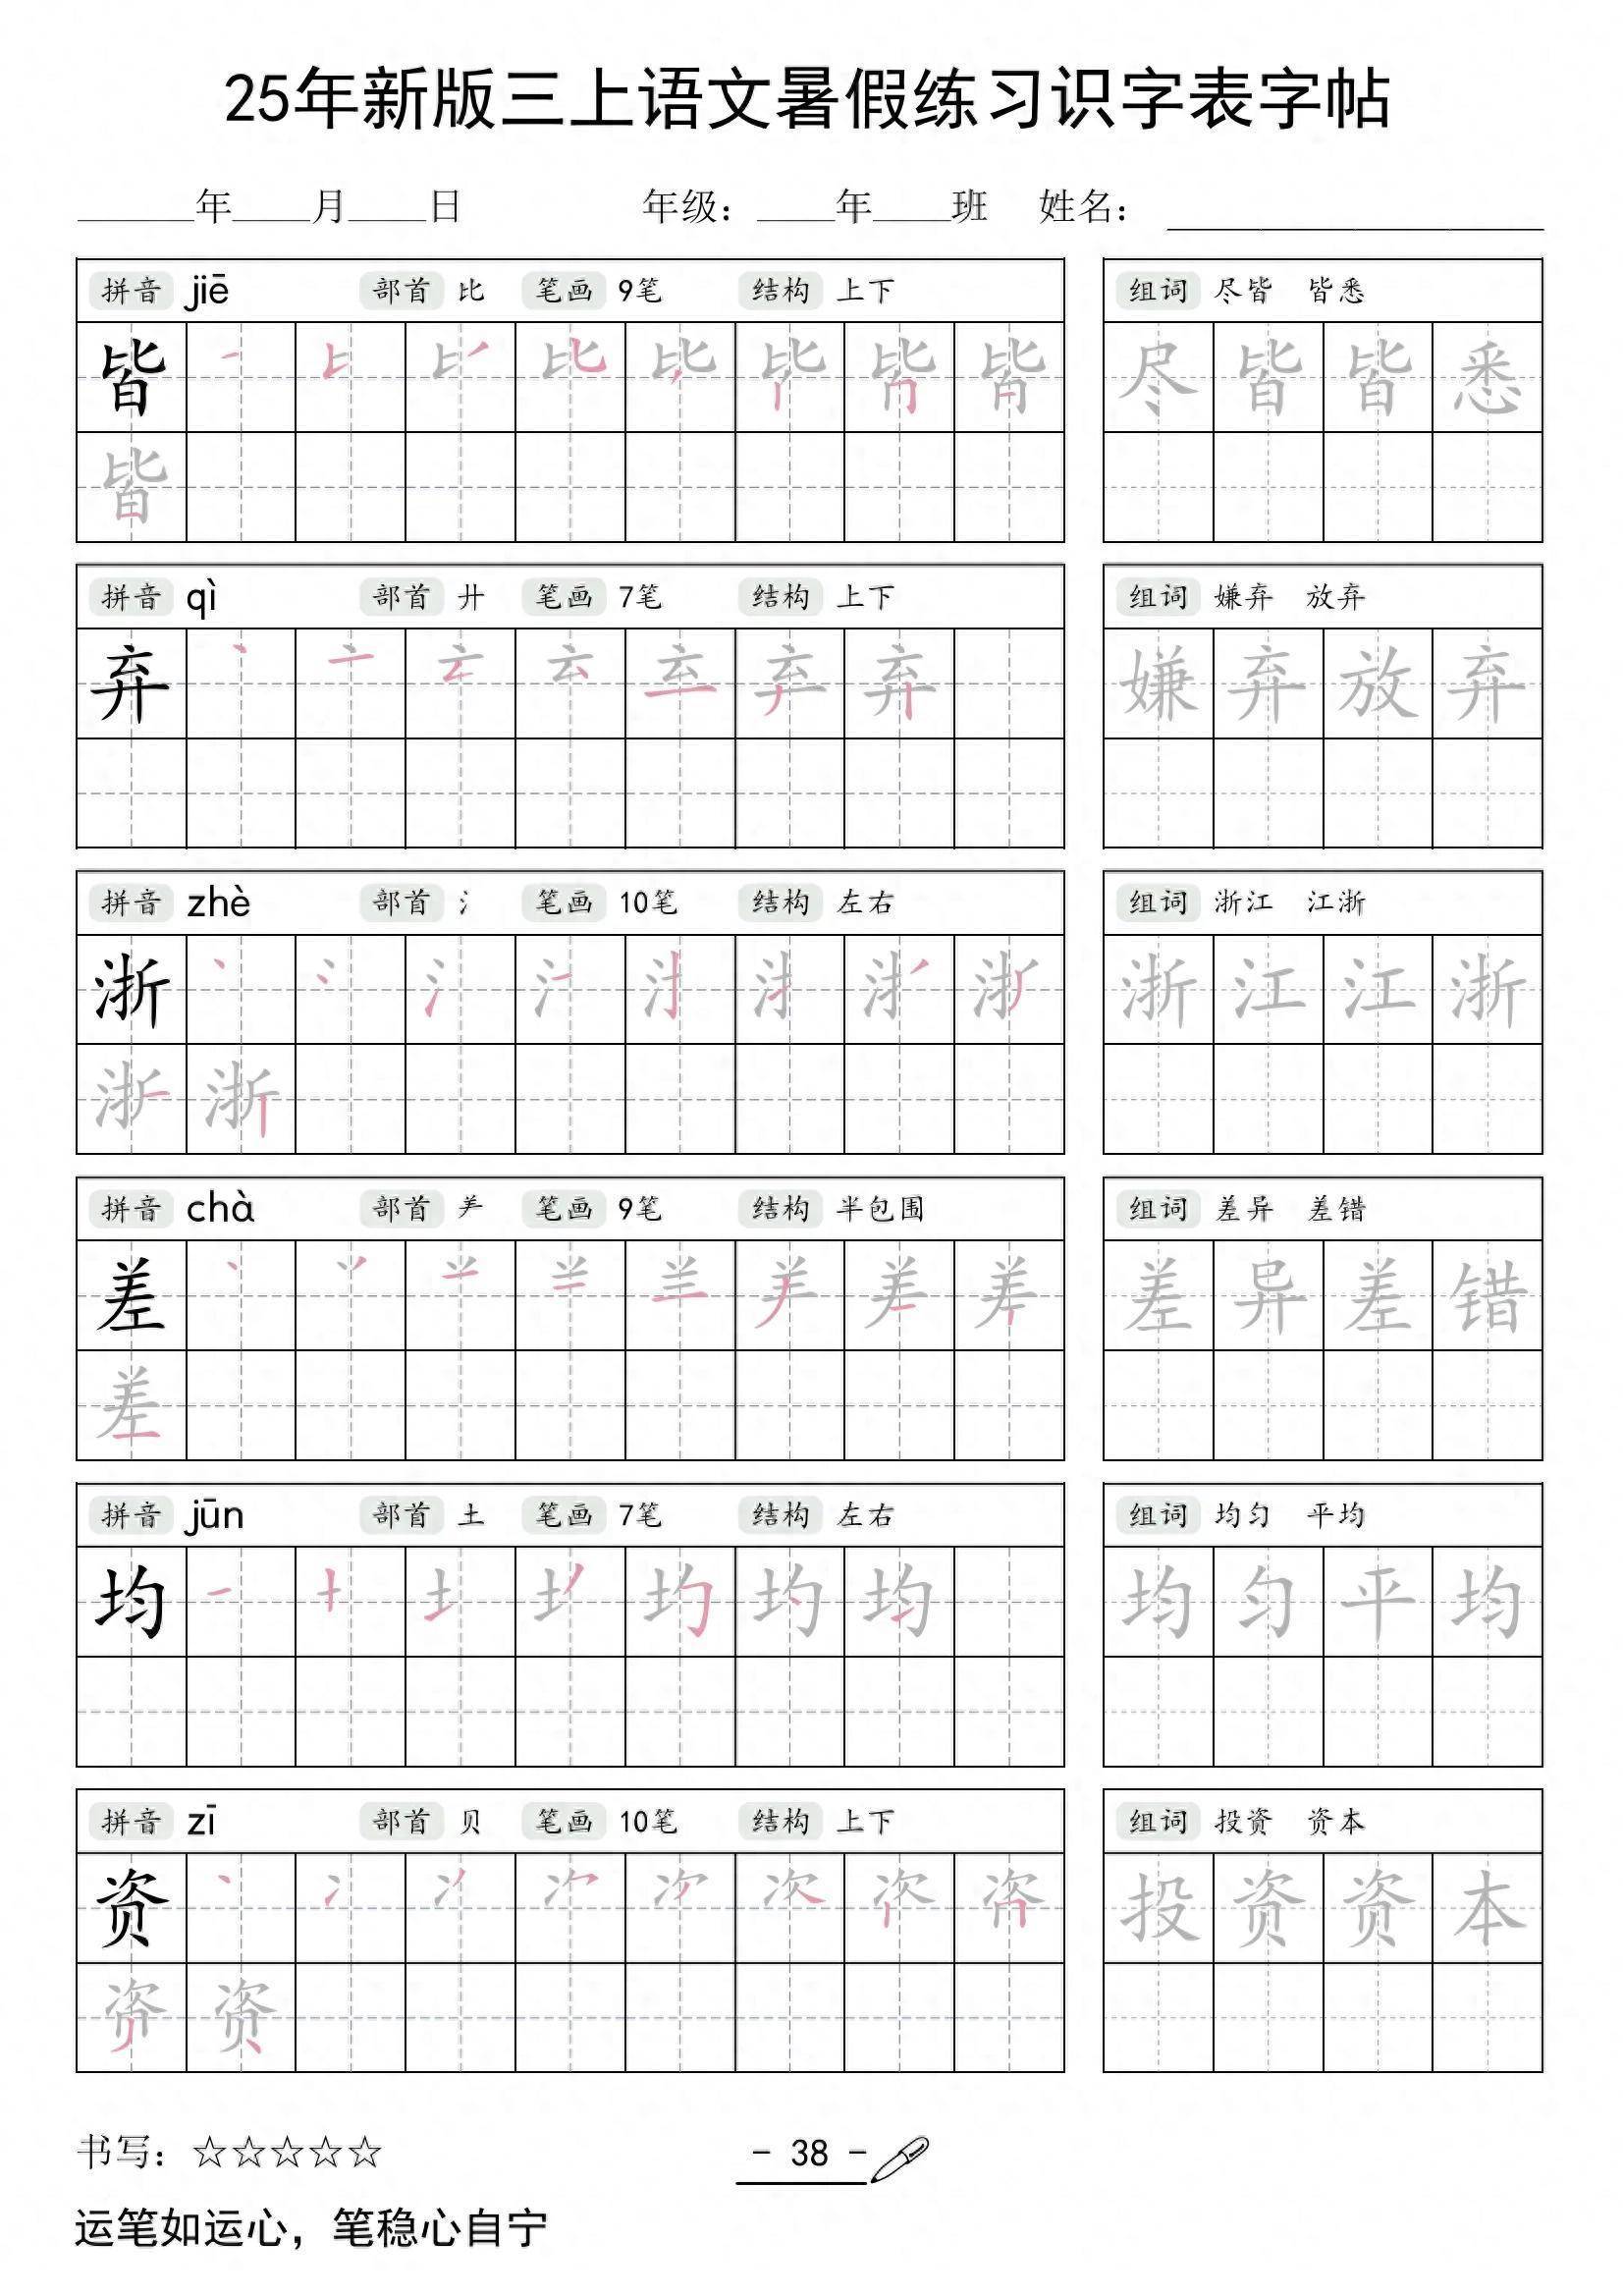 25年新版三上语文暑假练习识字表字帖
______年____月____日 年级：____年____班 姓名：____________________
拼音 jiē 部首 比 笔画 9笔 结构 上下 组词 尽皆 皆悉
皆 尽 皆 皆 悉
皆
拼音 qì 部首 廾 笔画 7笔 结构 上下 组词 嫌弃 放弃
弃 弃 嫌 弃 放 弃
拼音 zhè 部首 氵 笔画 10笔 结构 左右 组词 浙江 江浙
浙 浙 江 江 浙
浙
拼音 chà 部首 羊 笔画 9笔 结构 半包围 组词 差异 差错
差 差 异 差 错
差
拼音 jūn 部首 土 笔画 7笔 结构 左右 组词 均匀 平均
均 均 均 匀 平 均
拼音 zī 部首 贝 笔画 10笔 结构 上下 组词 投资 资本
资 投 资 资 本
资
书写：☆☆☆☆☆
- 38 -
运笔如运心，笔稳心自宁